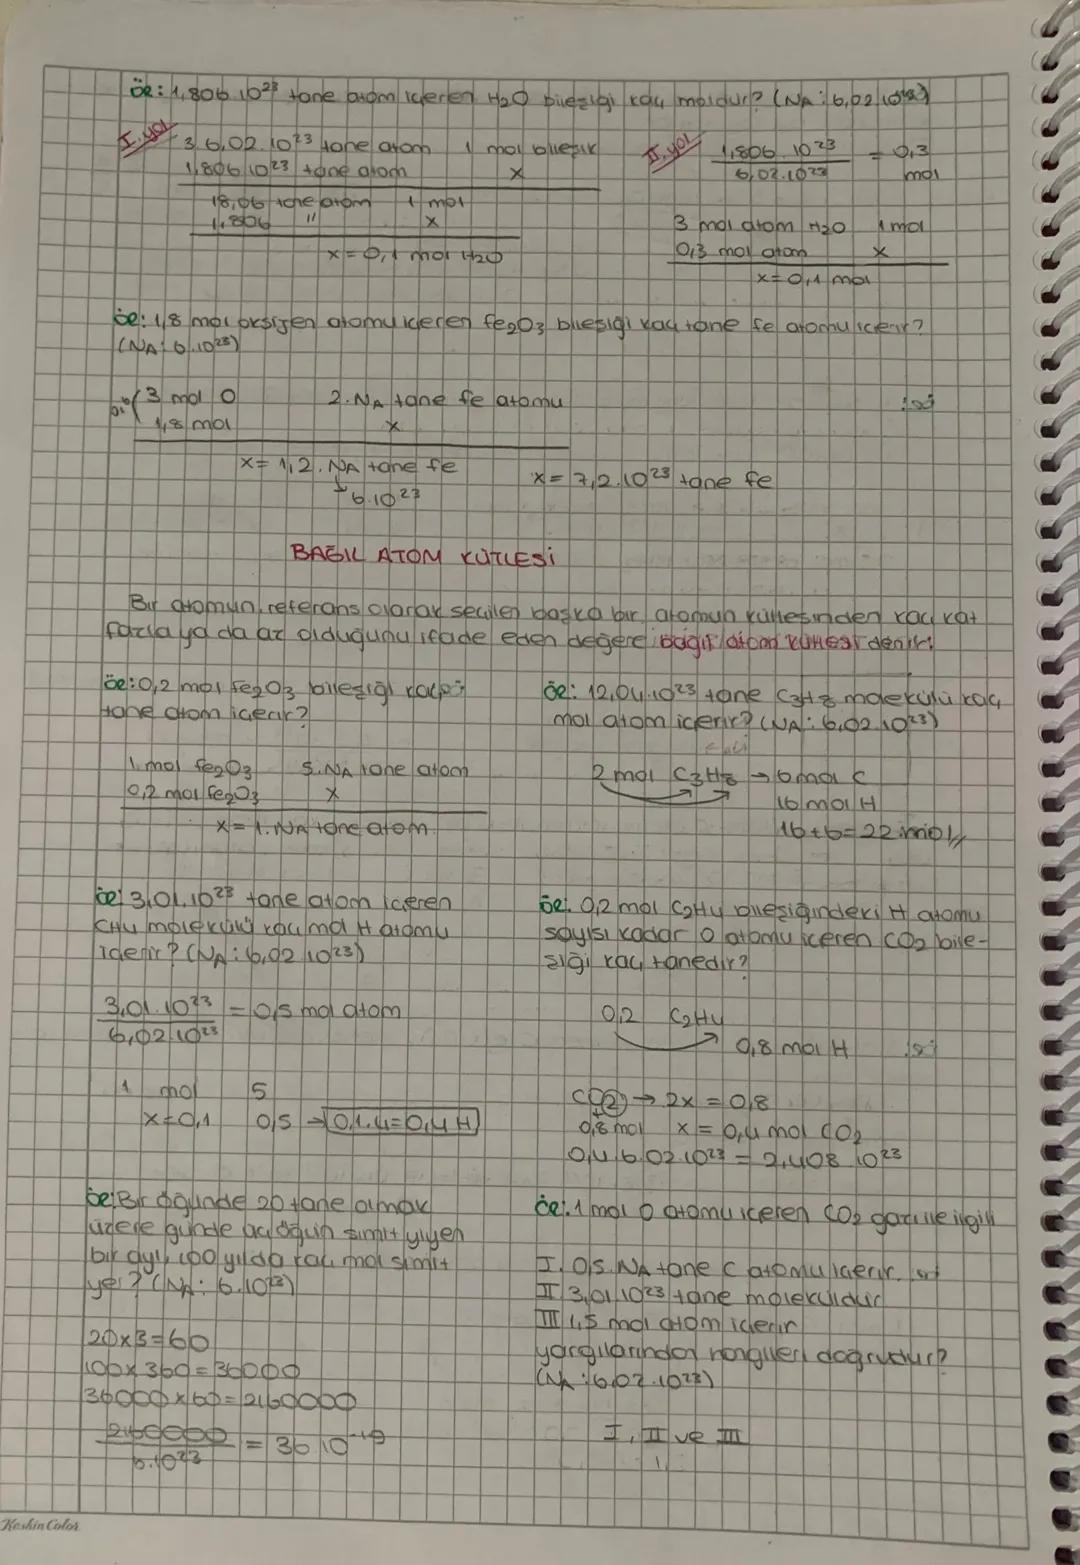 ÖR: 1,806.10²³ tane atom içeren H2O bileşiği kaç moldür? (NA: 6,02.10²³)
I. yol
3.6,02.10²³ tane atom 1 mol bileşik
1,806.10²³ tane atom x
18,06 tane atom 1 mol
1,806 " x
x=0,1 mol H2O
II. yol
1,806.10²³ = 0,3
6,02.10²³ mol
3 mol atom H2O 1 mol
0,3 mol atom x
x=0,1 mol
ÖR: 1,8 mol oksijen atomu içeren Fe2O3 bileşiği kaç tane Fe atomu içerir?
(NA: 6.10²³)
3 mol O 2.NA tane fe atomu
1,8 mol x
x= 1,2.NA tane fe
6.10²³
x= 7,2.10²³ tane fe
BAĞIL ATOM KÜTLESİ
Bir atomun, referans olarak seçilen başka bir atomun kütlesinden kaç kat
fazla ya da az olduğunu ifade eden değere bağıl atom kütlesi denir.
ÖR: 0,2 mol Fe2O3 bileşiği kaç
tane atom içerir?
1 mol Fe2O3 5.NA tane atom
0,2 mol Fe2O3 x
x= 1.NA tane atom
ÖR: 12,04.10²³ tane C3H8 molekülü kaç
mol atom içerir? (NA: 6,02.10²³)
2 mol C3H8 → 6 mol C
16 mol H
16+6=22 mol
ÖR: 3,01.10²³ tane atom içeren
CH4 molekülü kaç mol H atomu
içerir? (NA: 6,02.10²³)
3,01.10²³ = 0,5 mol atom
6,02.10²³
1 mol 5
x=0,1 0,5 → 0,1.4=0,4 H
ÖR: 0,2 mol C2H4 bileşiğindeki H atomu
sayısı kadar O atomu içeren CO2 bile-
şiği kaç tanedir?
0,2 C2H4
0,8 mol H
CO2 → 2x = 0,8
0,8 mol x = 0,4 mol CO2
0,4.6,02.10²³ = 2,408.10²³
ÖR: Bir öğünde 20 tane olmak
üzere günde üç öğün simit yiyen
bir 100 yılda kaç mol simit
yer? (NA: 6.10²³)
20x3=60
100x360=36000
36000x60=2160000
2160000 = 36.10⁻¹⁹
6.10²³
ÖR: 1 mol O atomu içeren CO2 gazı ile ilgili
I. 0,5.NA tane C atomu içerir.
II 3,01.10²³ tane moleküldür
III 1,5 mol atom içerir
yargılarından hangileri doğrudur?
(NA: 6,02.10²³)
I, II ve III
Keskin Color